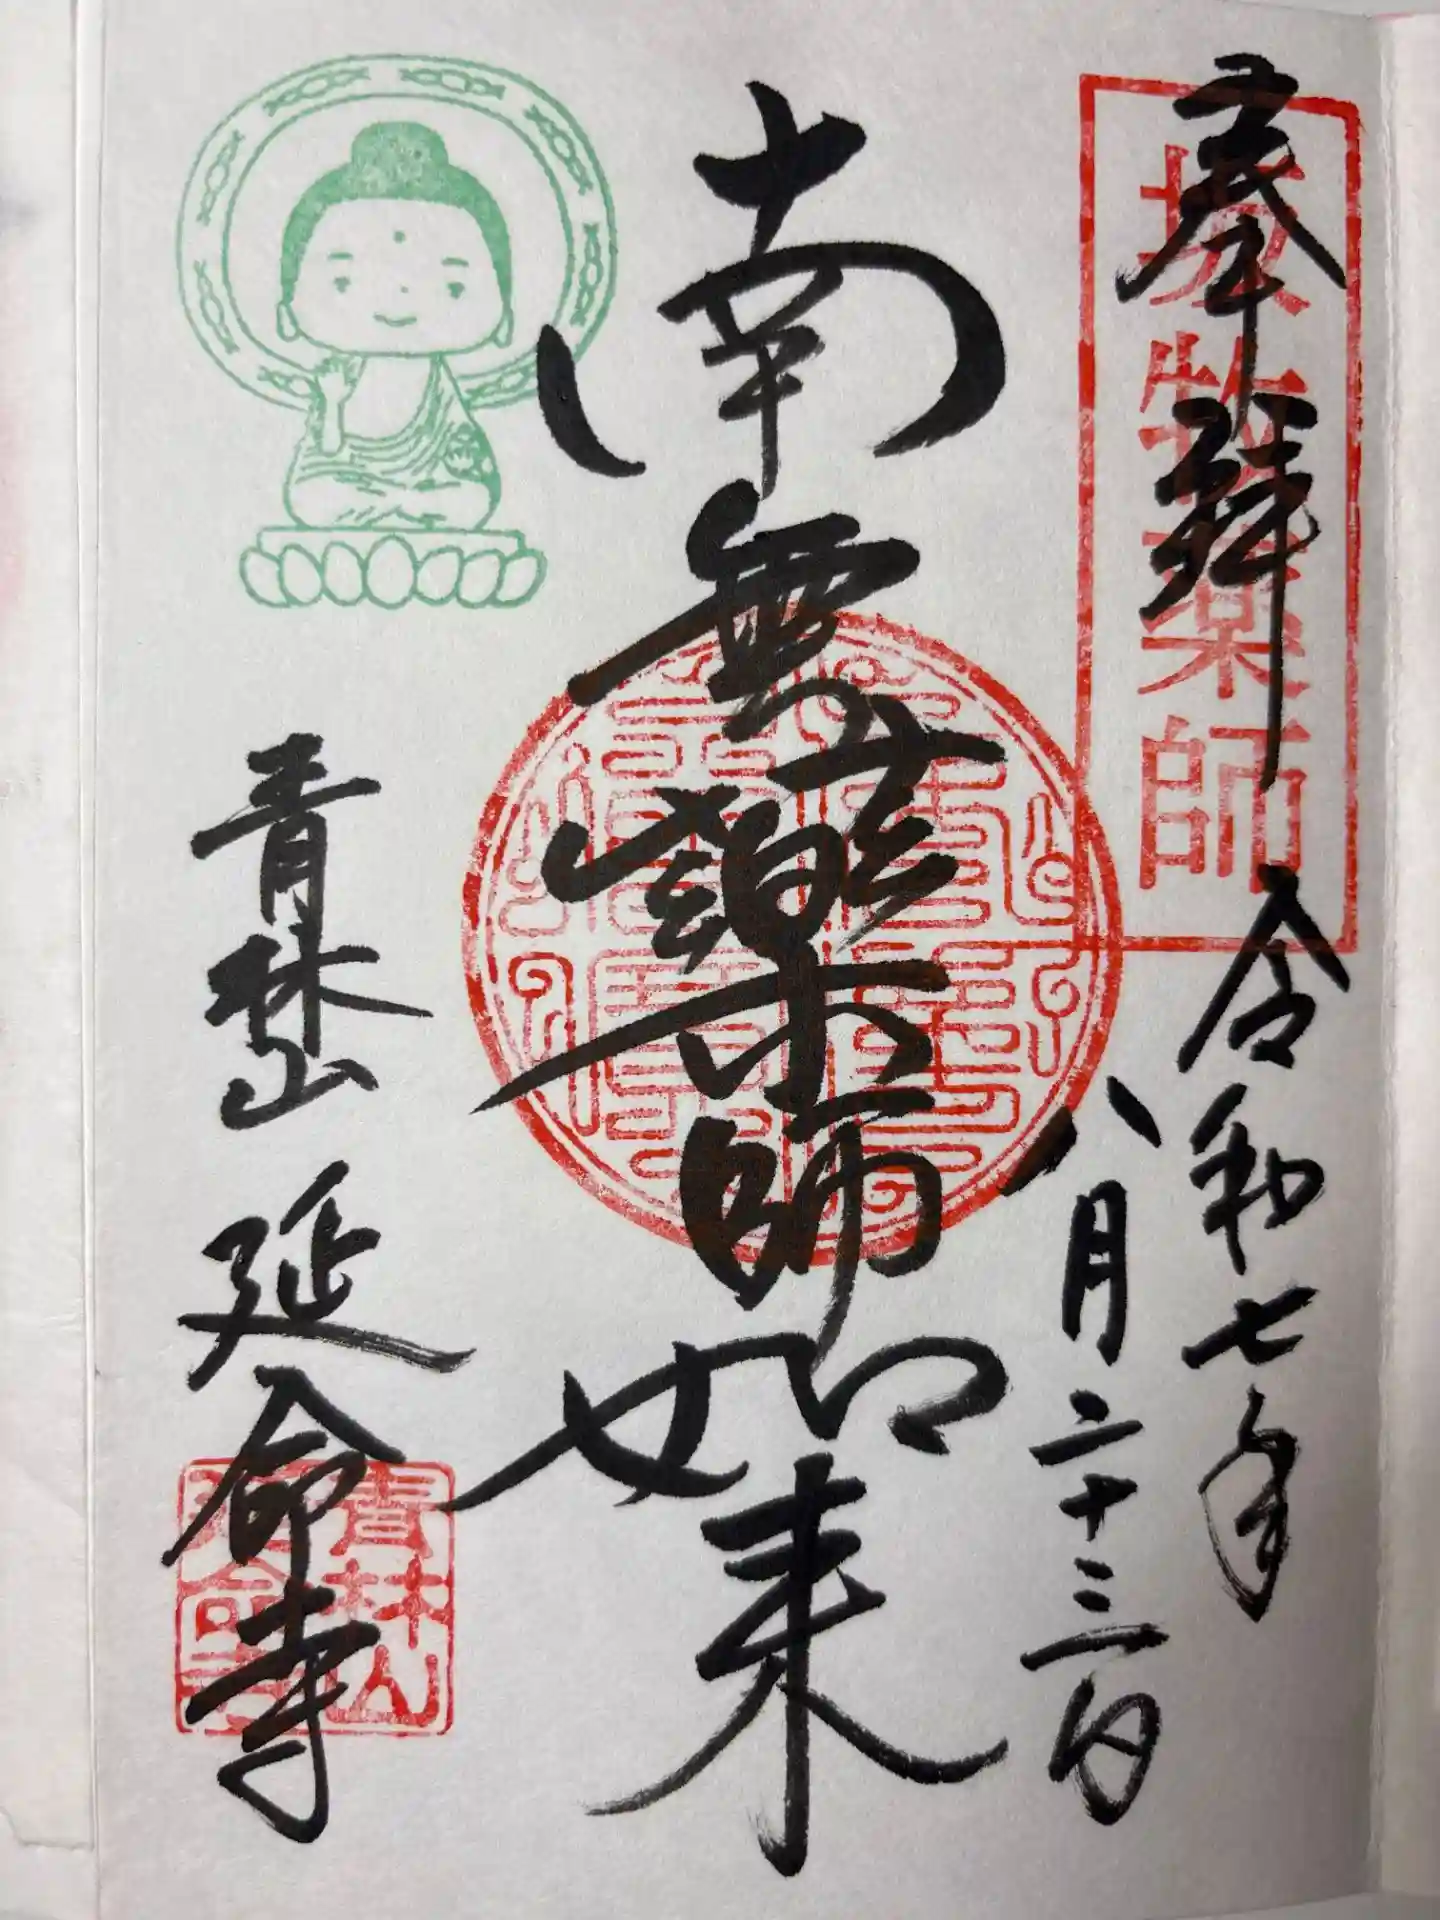 奉拝
薬師
令和七年
八月二十三日
南無薬師如来
青林山 延命寺
青林山
延命寺